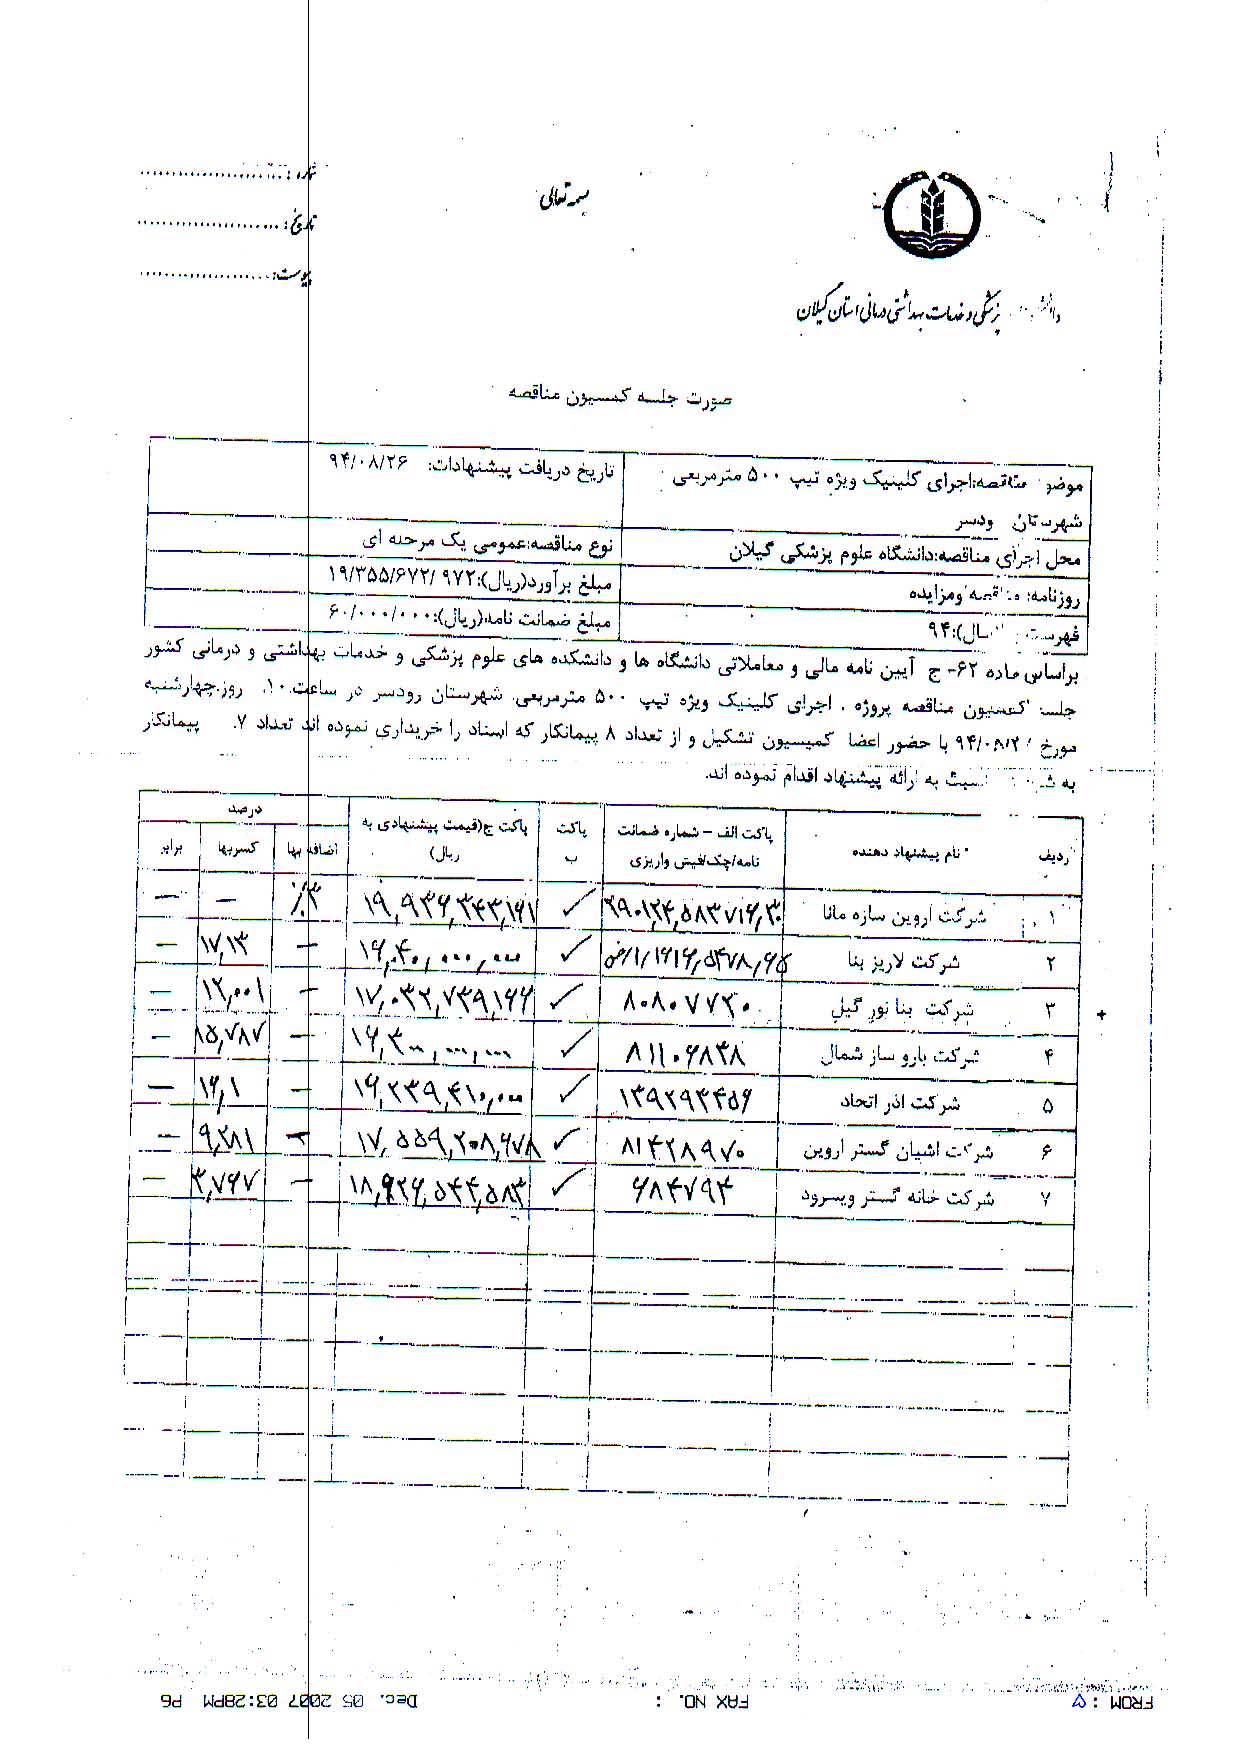 بسمه تعالی
شماره :
تاریخ :
پیوست:
پزشکی و خدمات بهداشتی درمانی استان گیلان
صورت جلسه کمسیون مناقصه
موضوع مناقصه:اجرای کلینیک ویژه تیپ ۵۰۰ مترمربعی
شهرستان ودسر
تاریخ دریافت پیشنهادات: ۹۴/۰۸/۲۶
محل اجرای مناقصه:دانشگاه علوم پزشکی گیلان
نوع مناقصه:عمومی یک مرحله ای
روزنامه: مناقصه ومزایده
مبلغ برآورد(ریال):۱۹/۳۵۵/۶۷۲/۹۷۲
فهرست سال):۹۴
مبلغ ضمانت نامه(ریال):۶۰/۰۰۰/۰۰۰
براساس ماده ۶۲- ج آیین نامه مالی و معاملاتی دانشگاه ها و دانشکده های علوم پزشکی و خدمات بهداشتی و درمانی کشور
جلسه کمسیون مناقصه پروژه . اجرای کلینیک ویژه تیپ ۵۰۰ مترمربعی. شهرستان رودسر در ساعت.۱۰. روز.چهارشنبه
مورخ ۹۴/۰۸/۲ با حضور اعضا کمیسیون تشکیل و از تعداد ۸ پیمانکار که اسناد را خریداری نموده اند تعداد ۷. پیمانکار
به نسبت به ارائه پیشنهاد اقدام نموده اند.
ردیف نام پیشنهاد دهنده پاکت الف – شماره ضمانت نامه/چک/فیش واریزی پاکت ب پاکت ج(قیمت پیشنهادی به ریال) درصد
اضافه بها کسربها برابر
۱ شرکت اروین سازه مانا ✓ ۱۹,۹۳۶,۳۴۳,۱۶۱ ٪۳ – –
۲ شرکت لاریز بنا ✓ ۱۶,۰۴۰,۰۰۰,۰۰۰ – ۱۷,۱۳ –
۳ شرکت بنا نور گیل ۸۰۸۰۷۷۲۰ ✓ ۱۷,۰۳۲,۷۳۹,۱۶۶ – ۱۲,۰۰۱ –
۴ شرکت بارو ساز شمال ۸۱۱۰۶۸۳۸ ✓ ۱۶,۳۰۰,۰۰۰,۰۰۰ – ۱۵,۷۸۷ –
۵ شرکت اذر اتحاد ۱۳۹۲۹۳۴۵۶ ✓ ۱۶,۲۳۹,۴۱۰,۰۰۰ – ۱۶,۱ –
۶ شرکت اشیان گستر اروین ۸۱۴۲۸۹۷۰ ✓ ۱۷,۵۵۹,۲۰۸,۶۷۸ – ۹,۲۸۱ –
۷ شرکت خانه گستر ویسرود ۶۸۴۷۹۴ ✓ ۱۸,۶۲۶,۵۴۴,۵۸۳ – ۳,۷۶۷ –
FROM : ۵ FAX NO. : Dec. 05 2007 03:28PM P6